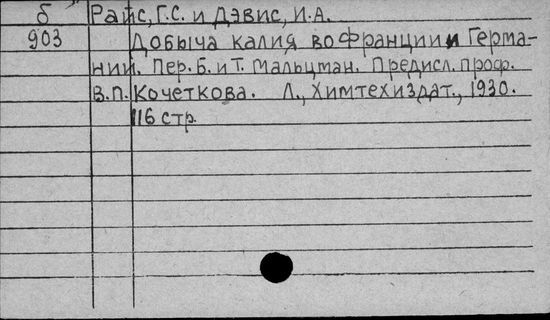 б Райс, Г.С. и Дэвис, И.А.
903 Добыча калия во Франции и Герма-
нии. Пер. Б. и Т. Мальцман. Предисл. проф.
В.П. Кочеткова. Л., Химтехиздат., 1930.
116 стр.